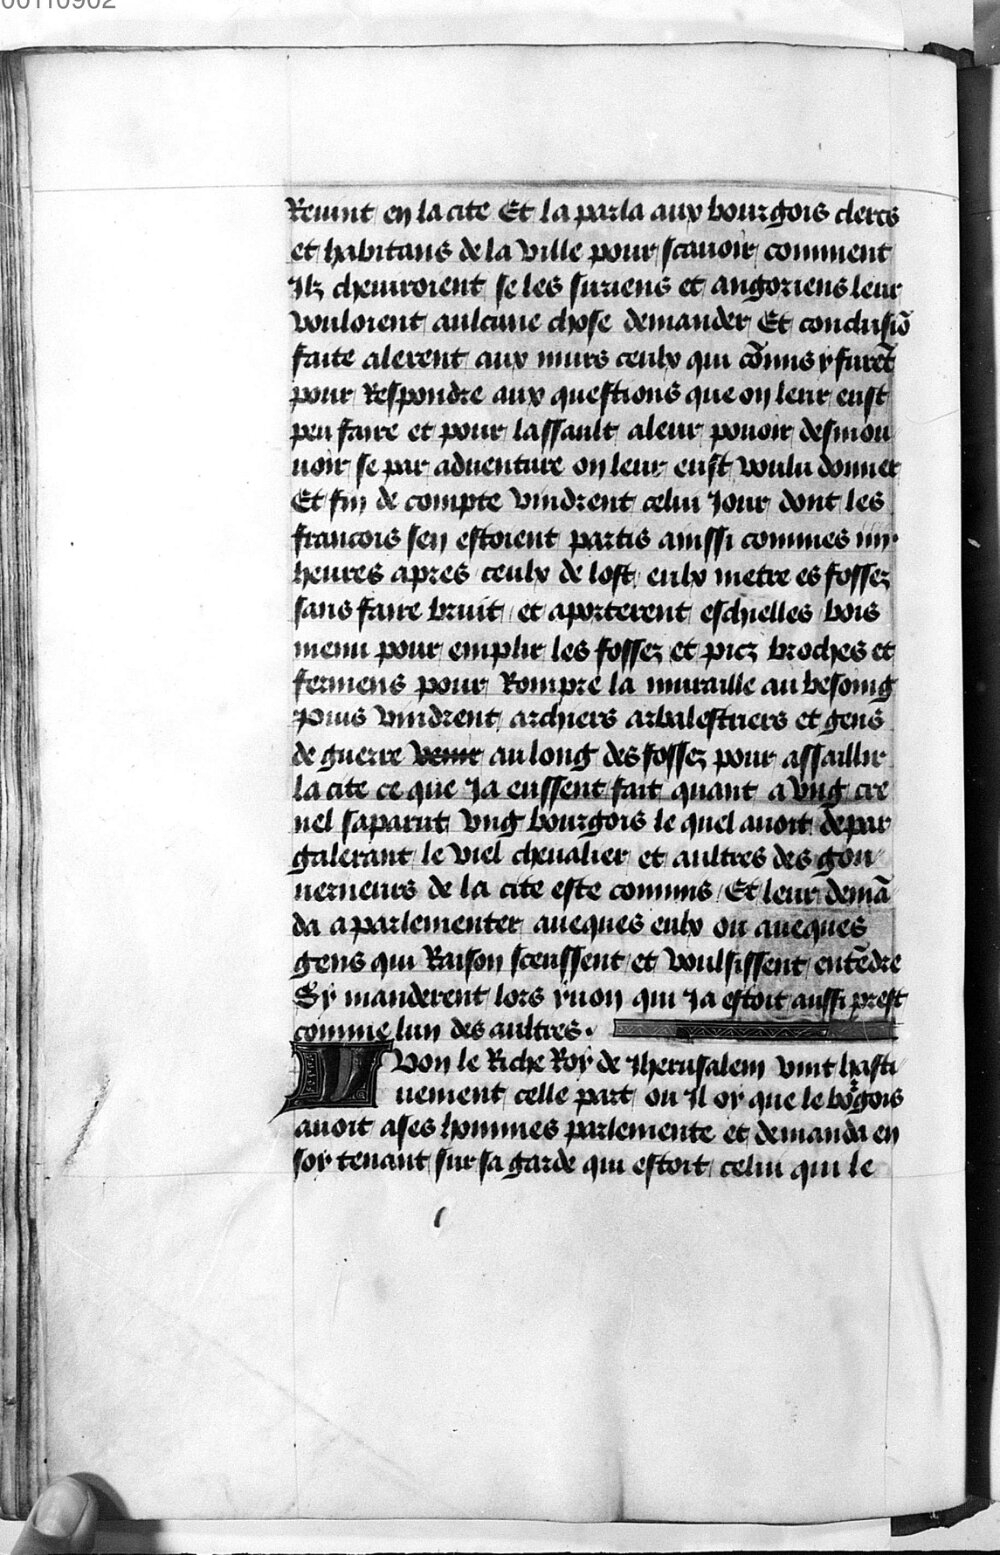 00110902
Reuint en la cite Et la parla aux bourgois clercs
et habitans de la ville pour scauoir comment
Ilz cheuiroient se les suriens et angoriens leur
vouloient aulcune chose demander Et conclusiō
faite alerent aux murs ceulx qui cōmis y furēt
pour Respondre aux questions que on leur eust
peu faire et pour lassault a leur pouoir desmou
uoir se par aduenture on leur eust voulu donner
Et fin de compte vindrent celui Jour dont les
francois sen estoient partis ainssi commes iiij.
heures apres ceulx de lost eulx metre es fossez
sans faire bruit et aporterent eschielles bois
menu pour emplir les fossez et picz broches et
fermens pour Rompre la muraille au besoing
Puis vindrent archiers arbalestriers et gens
de guerre venir au long des fossez pour assaillir
la cite ce que Ja eussent fait quant a vng cre
nel saparut vng bourgois le quel auoit de par
galerant le viel cheualier et aultres des gou
uerneurs de la cite este commis Et leur demā
da a parlementer aueques eulx ou aueques
gens qui Raison sceussent et voulsissent entēdre
Sy manderent lors yuon qui Ja estoit aussi prest
comme lun des aultres.
Yvon le Riche Roy de Jherusalem vint hasti
uement celle part ou Il oy que le bōgois
auoit a ses hommes parlemente et demanda en
soy tenant sur sa garde qui estoit celui qui le